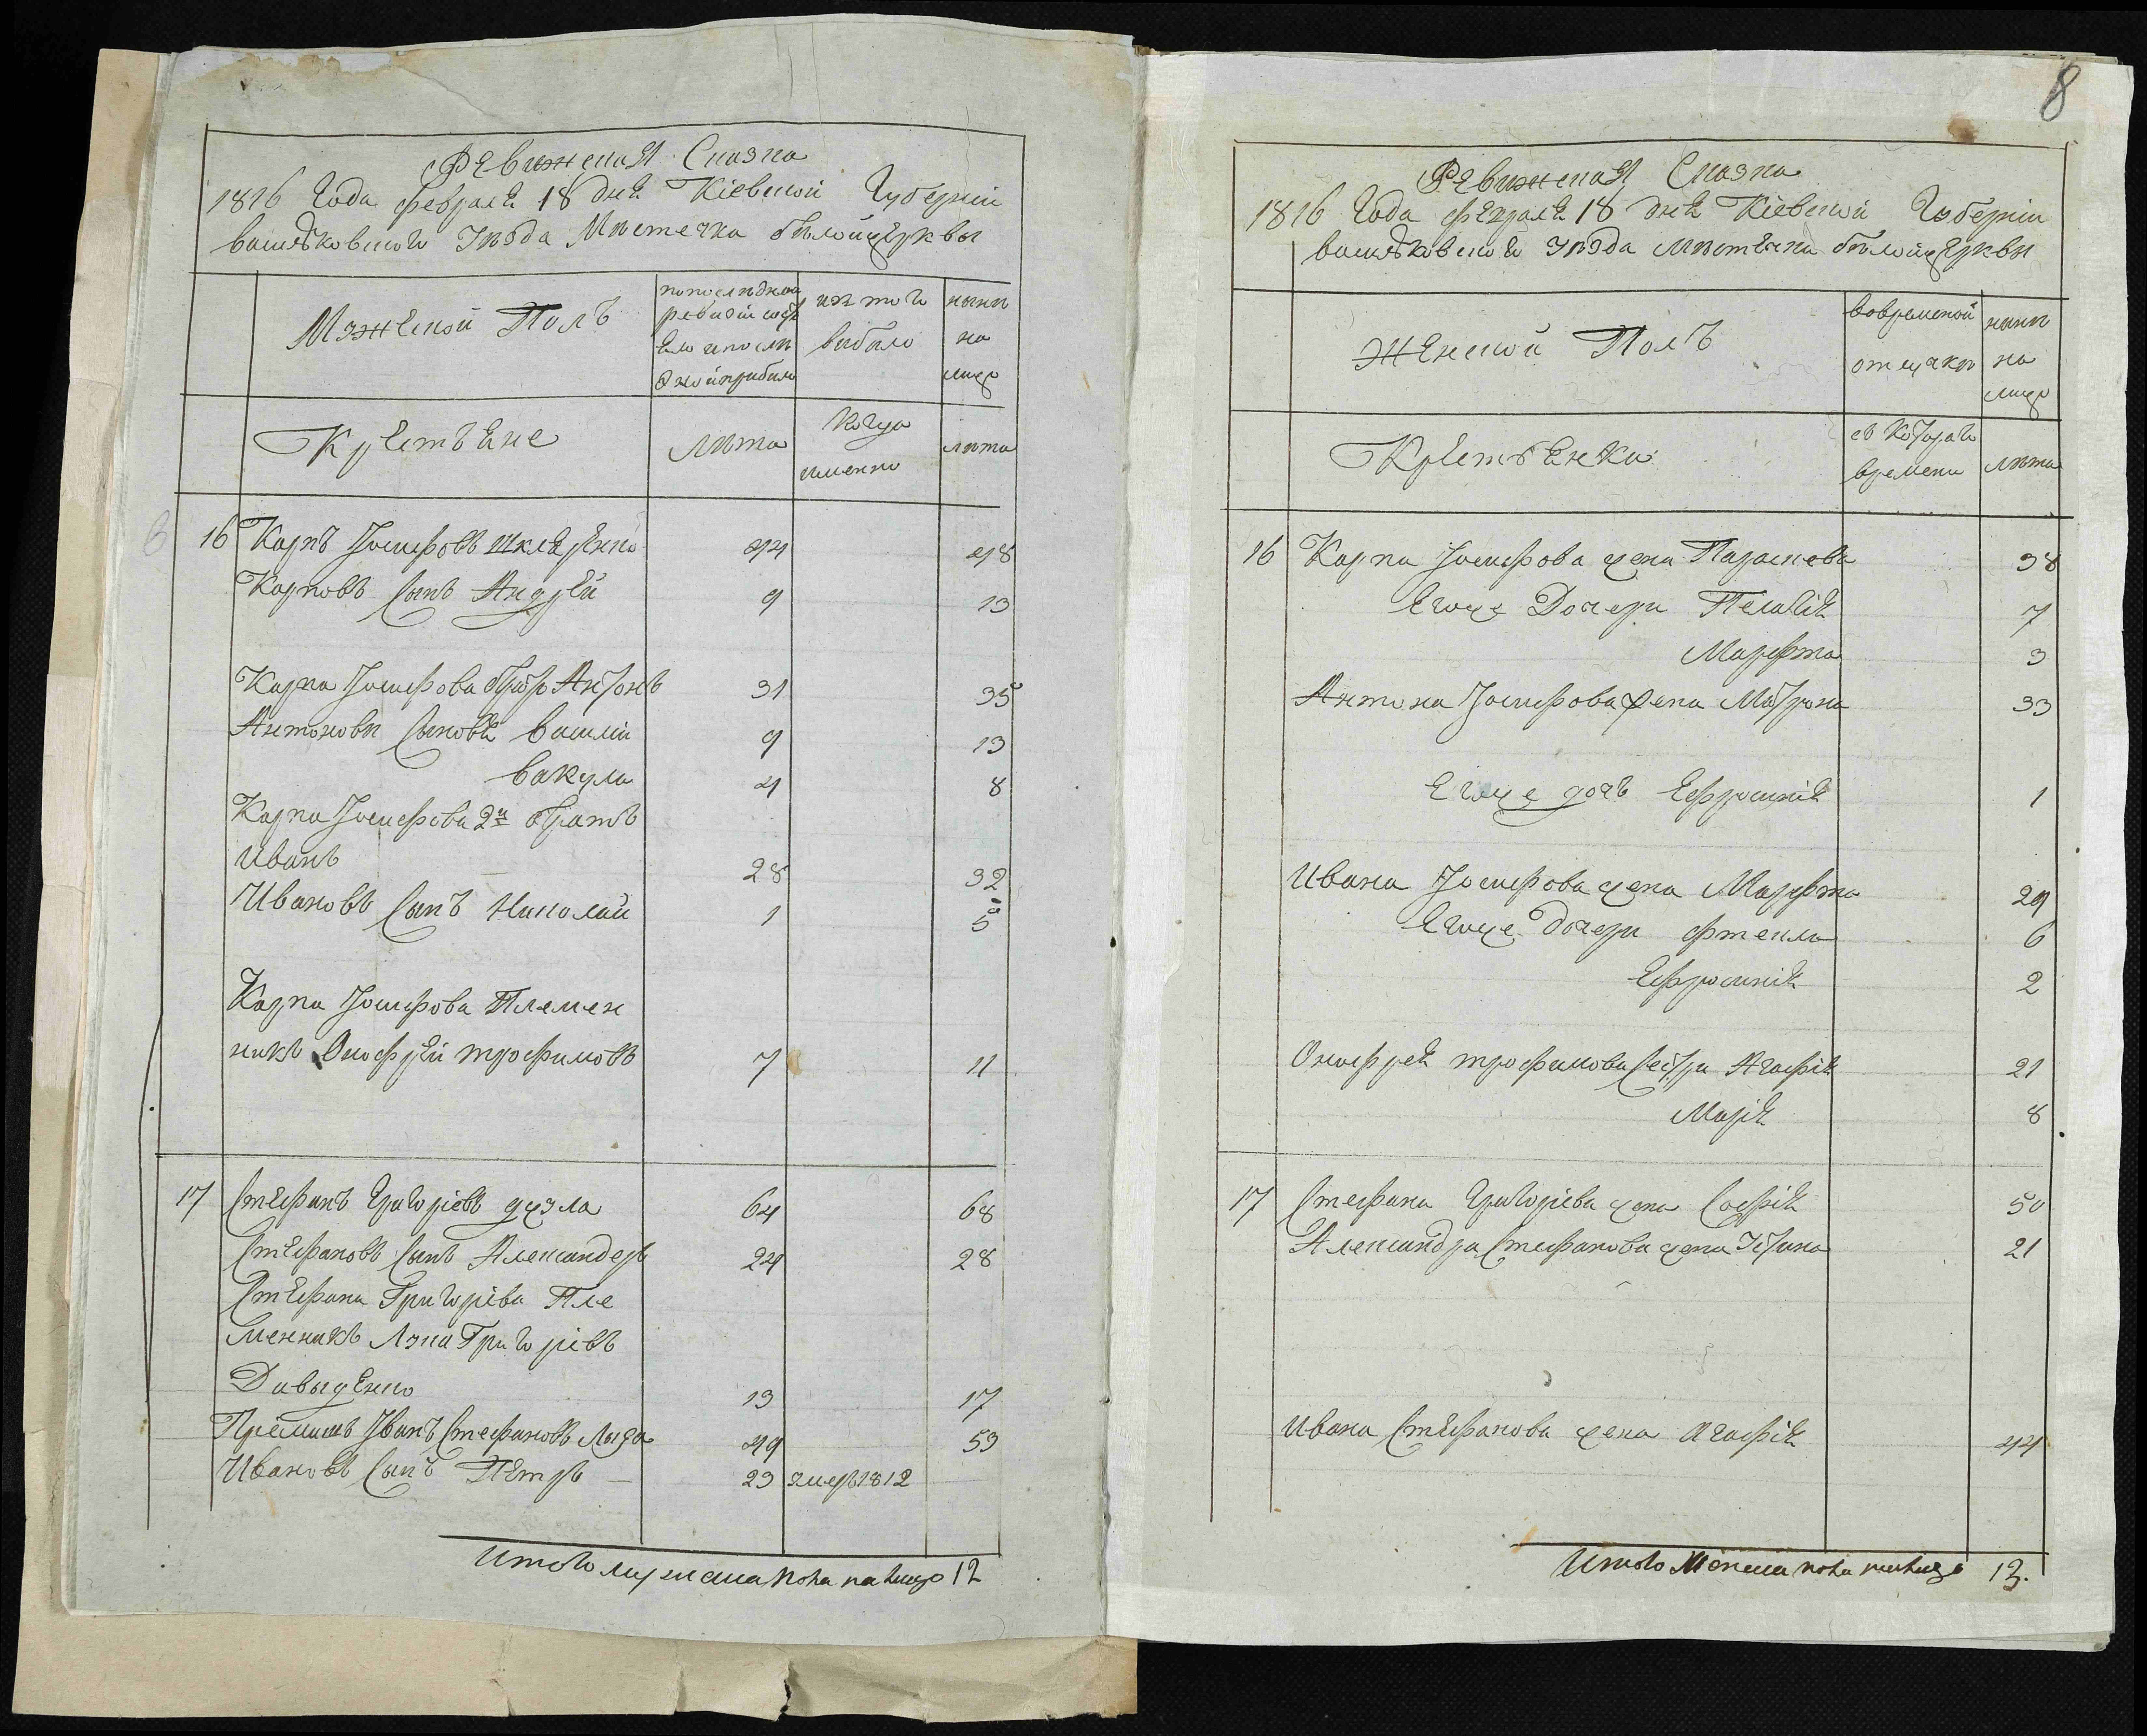 8
Ревижская Сказка
1816 Года февраля 18 дня Кіевской Губерніи
васильковского Уезда Местечка белойцеркви
Мужеской Полъ
попоследней
ревизіи состо
яло и после
оной прибыло
изъ того
выбыло
ныне
на
лицо
Крестьяне
Лета
Когда
именно
лета
16 Карпъ Іосифовъ шкляренко 44 48
Карповъ Сынъ Андрей 9 13
Карпа Іосифова братъ Антонъ 31 35
Антоновы Сыновья василій 9 13
вакула 4 8
Карпа Іосифова 2й братъ
Иванъ 28 32
Ивановъ Сынъ Николай 1 5
Карпа Іосифова Племен
никъ Онофрей трофимовъ 7 11
17 Стефанъ Григоріевъ дузла 64 68
Стефановъ Сынъ Александеръ 24 28
Стефана Григоріева Пле
менникъ Григоріевъ
Давыденко 13 17
Іванъ Стефановъ 49 53
Ивановъ Сынъ Петръ 23 умеръ 1812
Итого мужеска пола на лицо 12
Ревижская Сказка
1816 Года февраля 18 дня Кіевской Губерніи
васильковского Уезда местечка белойцеркви
Женской Полъ
вовременной
отлучке
ныне
на
лицо
Крестьянки
съ которого
времени
лета
16 Карпа Іосифова жена Параскева 38
Егоже Дочери Пелагія 7
Марфта 3
Антона Іосифова жена Матрона 33
Егоже дочь Ефросинія 1
Ивана Іосифова жена Марфта 29
Егоже Дочери фтекла 6
Ефросинія 2
Онофрея трофимова Сестры Агафія 21
Марія 8
17 Стефана Григоріева жена Софія 50
Александра Стефанова жена Устина 21
Ивана Стефанова жена Агафія 44
Итого Женска пола налицо 13.